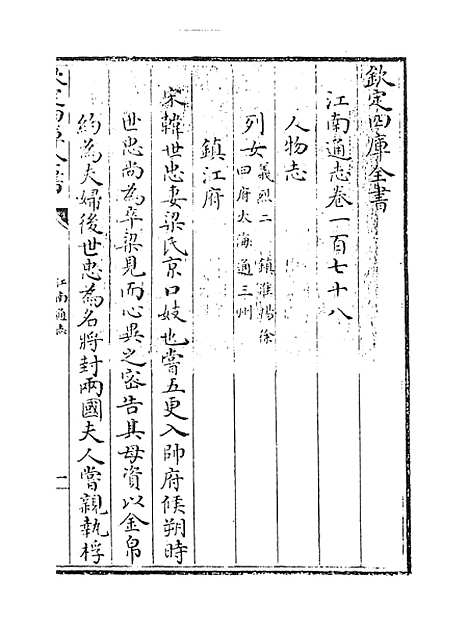 欽定四庫全書
江南通志卷一百七十八
人物志
列女 義烈二 鎮淮揚徐
四府太海通三州
鎮江府
宋韓世忠妻梁氏京口妓也嘗五更入帥府候朔時
世忠尚為卒梁見而心異之密告其母資以金帛
約為夫婦後世忠為名將封兩國夫人嘗親執桴
江南通志
一